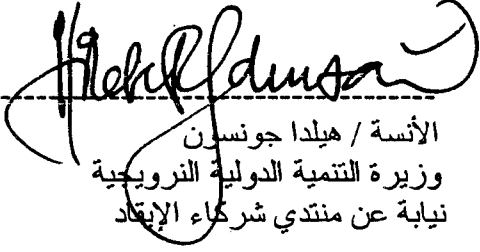 الأنسة / هيلدا جونسون
وزيرة التنمية الدولية النرويجية
نيابة عن منتدي شركاء الإيقاد